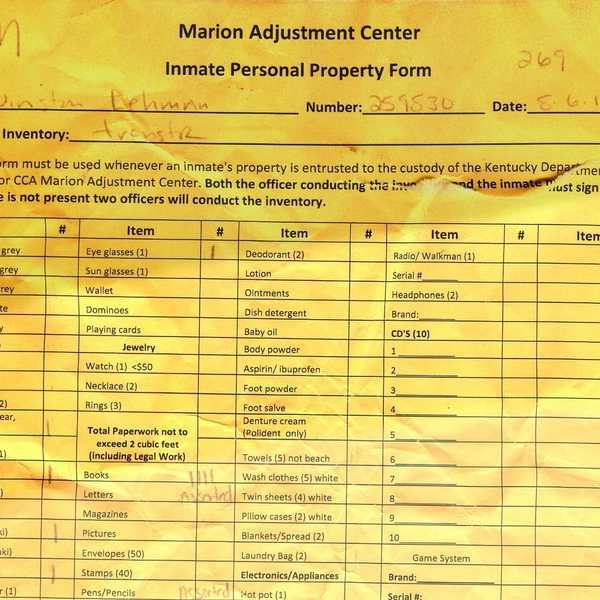 Marion Adjustment Center
Inmate Personal Property Form
269
Number: 259530 Date: 8.6.1
Inventory: transfr
orm must be used whenever an inmate's property is entrusted to the custody of the Kentucky Depar
or CCA Marion Adjustment Center. Both the officer conducting the and the inmate must sign
e is not present two officers will conduct the inventory.
# Item # Item # Item # Item
grey Eye glasses (1) 1 Deodorant (2) Radio/ Walkman (1)
grey Sun glasses (1) Lotion Serial #
rey Wallet Ointments Headphones (2)
te Dominoes Dish detergent Brand:
y Playing cards Baby oil CD'S (10)
Jewelry Body powder 1
Watch (1) <$50 Aspirin/ ibuprofen 2
Necklace (2) Foot powder 3
2) Rings (3) Foot salve 4
ear, Total Paperwork not to exceed 2 cubic feet (including Legal Work) Denture cream (Polident only) 5
Towels (5) not beach 6
1 Books Wash clothes (5) white 7
Letters Twin sheets (4) white 8
Magazines Pillow cases (2) white 9
ki) 1 Pictures Blankets/Spread (2) 10
aki) Envelopes (50) Laundry Bag (2) Game System
1 Stamps (40) Electronics/Appliances Brand:
r (1) Pens/Pencils Assorted Hot pot (1) Serial #: